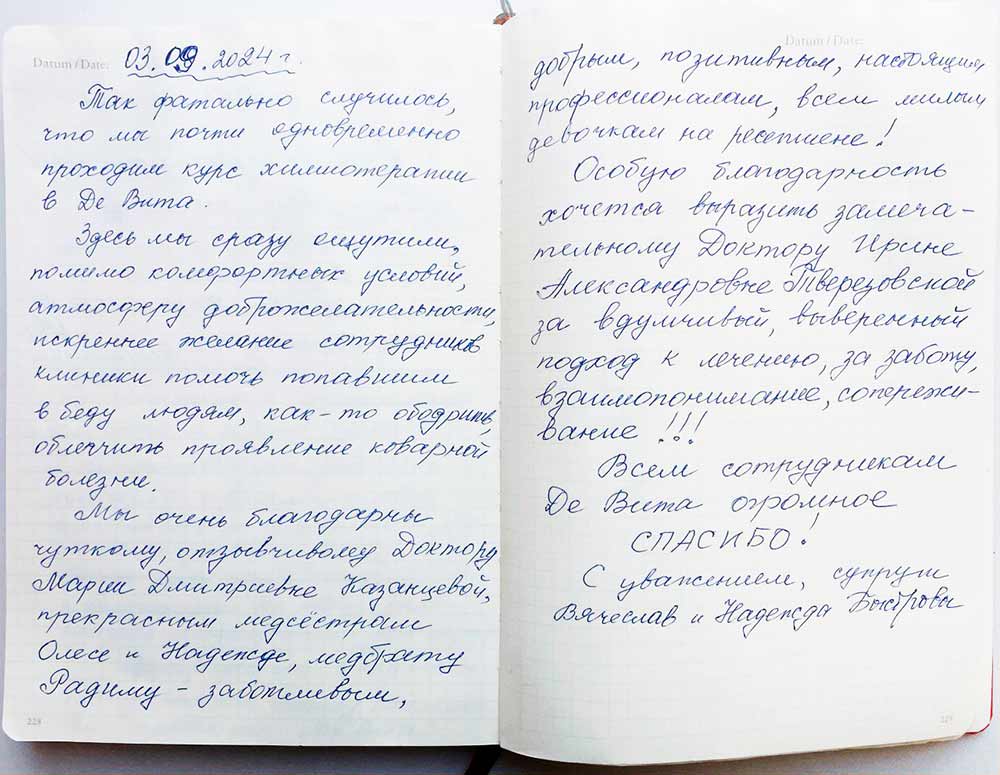 Datum / Date: 03.09.2024 г.
Так фатально случилось,
что мы почти одновременно
проходим курс химиотерапии
в Де Вита.
Здесь мы сразу ощутили,
помимо комфортных условий,
атмосферу доброжелательности,
искреннее желание сотрудников
клиники помочь попавшим
в беду людям, как-то ободрить,
облегчить проявление коварной
болезни.
Мы очень благодарны
чуткому, отзывчивому Доктору
Марии Дмитриевне Казанцевой,
прекрасным медсёстрам
Олесе и Надежде, медбрату
Радиму - заботливым,
228
Datum / Date:
добрым, позитивным, настоящим
профессионалам, всем милым
девочкам на ресепшене!
Особую благодарность
хочется выразить замеча-
тельному Доктору Ирине
Александровне Тверезовской
за вдумчивый, выверенный
подход к лечению, за заботу,
взаимопонимание, сопережи-
вание !!!
Всем сотрудникам
Де Вита огромное
СПАСИБО!
С уважением, супруги
Вячеслав и Надежда Быстровы